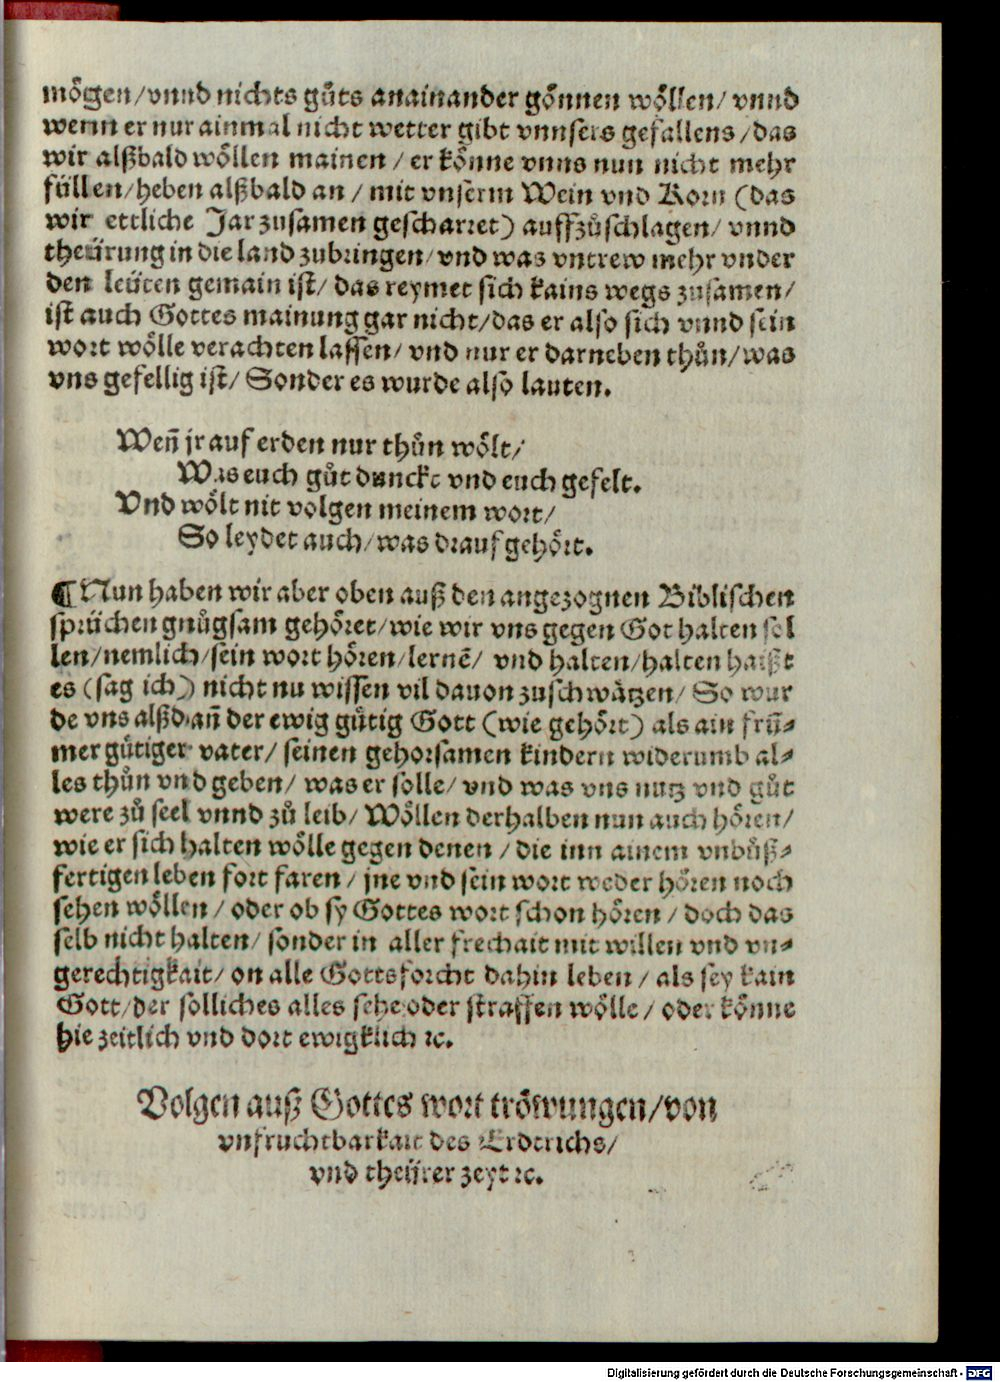 mögen/vnnd nichts gůts anainander gönnen wöllen/ vnnd
wenn er nur ainmal nicht wetter gibt vnnsers gefallens/das
wir alßbald wöllen mainen / er könne vnns nun nicht mehr
füllen/heben alßbald an / mit vnserm Wein vnd Korn (das
wir ettliche Jar zusamen gescharret) auffzůschlagen/ vnnd
theürung in die land zubringen/ vnd was vntrew mehr vnder
den leüten gemain ist/ das reymet sich kains wegs zusamen/
ist auch Gottes mainung gar nicht/das er also sich vnnd sein
wort wölle verachten lassen/ vnd nur er darneben thůn/was
vns gefellig ist/ Sonder es wurde also lauten.
Weñ jr auf erden nur thůn wölt/
Was euch gůt dunckt vnd euch gefelt.
Vnd wölt nit volgen meinem wort/
So leydet auch/was drauf gehört.
¶ Nun haben wir aber oben auß den angezognen Biblischen
sprüchen gnůgsam gehöret/wie wir vns gegen Got halten sol
len/nemlich/sein wort hören/lernē/ vnd halten/halten haißt
es (sag ich) nicht nu wissen vil dauon zuschwätzen/ So wur
de vns alßdañ der ewig gütig Gott (wie gehört) als ain frū⸗
mer gütiger vater/ seinen gehorsamen kindern widerumb al⸗
les thůn vnd geben/ was er solle/ vnd was vns nutz vnd gůt
were zů seel vnnd zů leib/ Wöllen derhalben nun auch hören/
wie er sich halten wölle gegen denen / die inn ainem vnbůß⸗
fertigen leben fort faren / jne vnd sein wort weder hören noch
sehen wöllen / oder ob sy Gottes wort schon hören / doch das
selb nicht halten/ sonder in aller frechait mit willen vnd vn⸗
gerechtigkait/ on alle Gottsforcht dahin leben / als sey kain
Gott/der solliches alles sehe oder straffen wölle / oder könne
hie zeitlich vnd dort ewigklich ꝛc.
Volgen auß Gottes wort tröwungen/von
vnfruchtbarkait des Erdtrichs/
vnd theürer zeyt ꝛc.
Digitalisierung gefördert durch die Deutsche Forschungsgemeinschaft - DFG